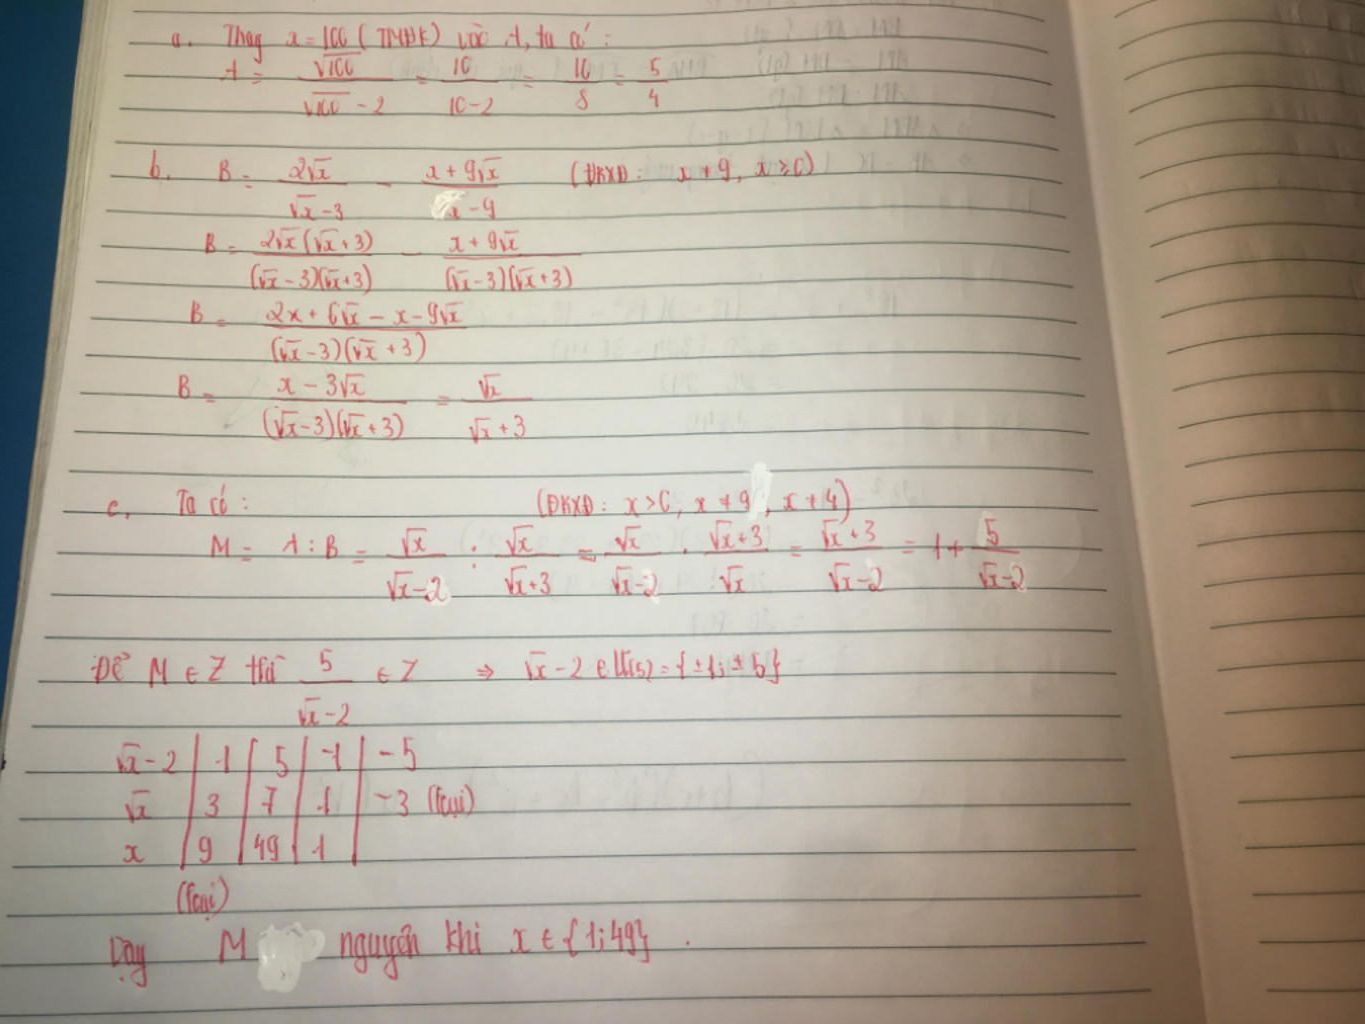 a. Thay x = 100 (TMĐK) vào A, ta có:
A = √100 / (√100 - 2) = 10 / (10 - 2) = 10/8 = 5/4
b. B = 2√x / (√x - 3) - (x + 9√x) / (x - 9) (ĐKXĐ: x ≠ 9, x ≥ 0)
B = 2√x(√x + 3) / (√x - 3)(√x + 3) - (x + 9√x) / (√x - 3)(√x + 3)
B = (2x + 6√x - x - 9√x) / (√x - 3)(√x + 3)
B = (x - 3√x) / (√x - 3)(√x + 3) = √x / (√x + 3)
c, Ta có: (ĐKXĐ: x > 0, x ≠ 9, x ≠ 4)
M = A : B = √x / (√x - 2) : √x / (√x + 3) = √x / (√x - 2) . (√x + 3) / √x = (√x + 3) / (√x - 2) = 1 + 5 / (√x - 2)
Để M ∈ Z thì 5 / (√x - 2) ∈ Z ⇒ √x - 2 ∈ Ư(5) = {±1; ±5}
√x - 2 | 1 | 5 | -1 | -5
√x | 3 | 7 | 1 | -3 (loại)
x | 9 | 49 | 1 |
(loại)
Vậy M nguyên khi x ∈ {1; 49}.